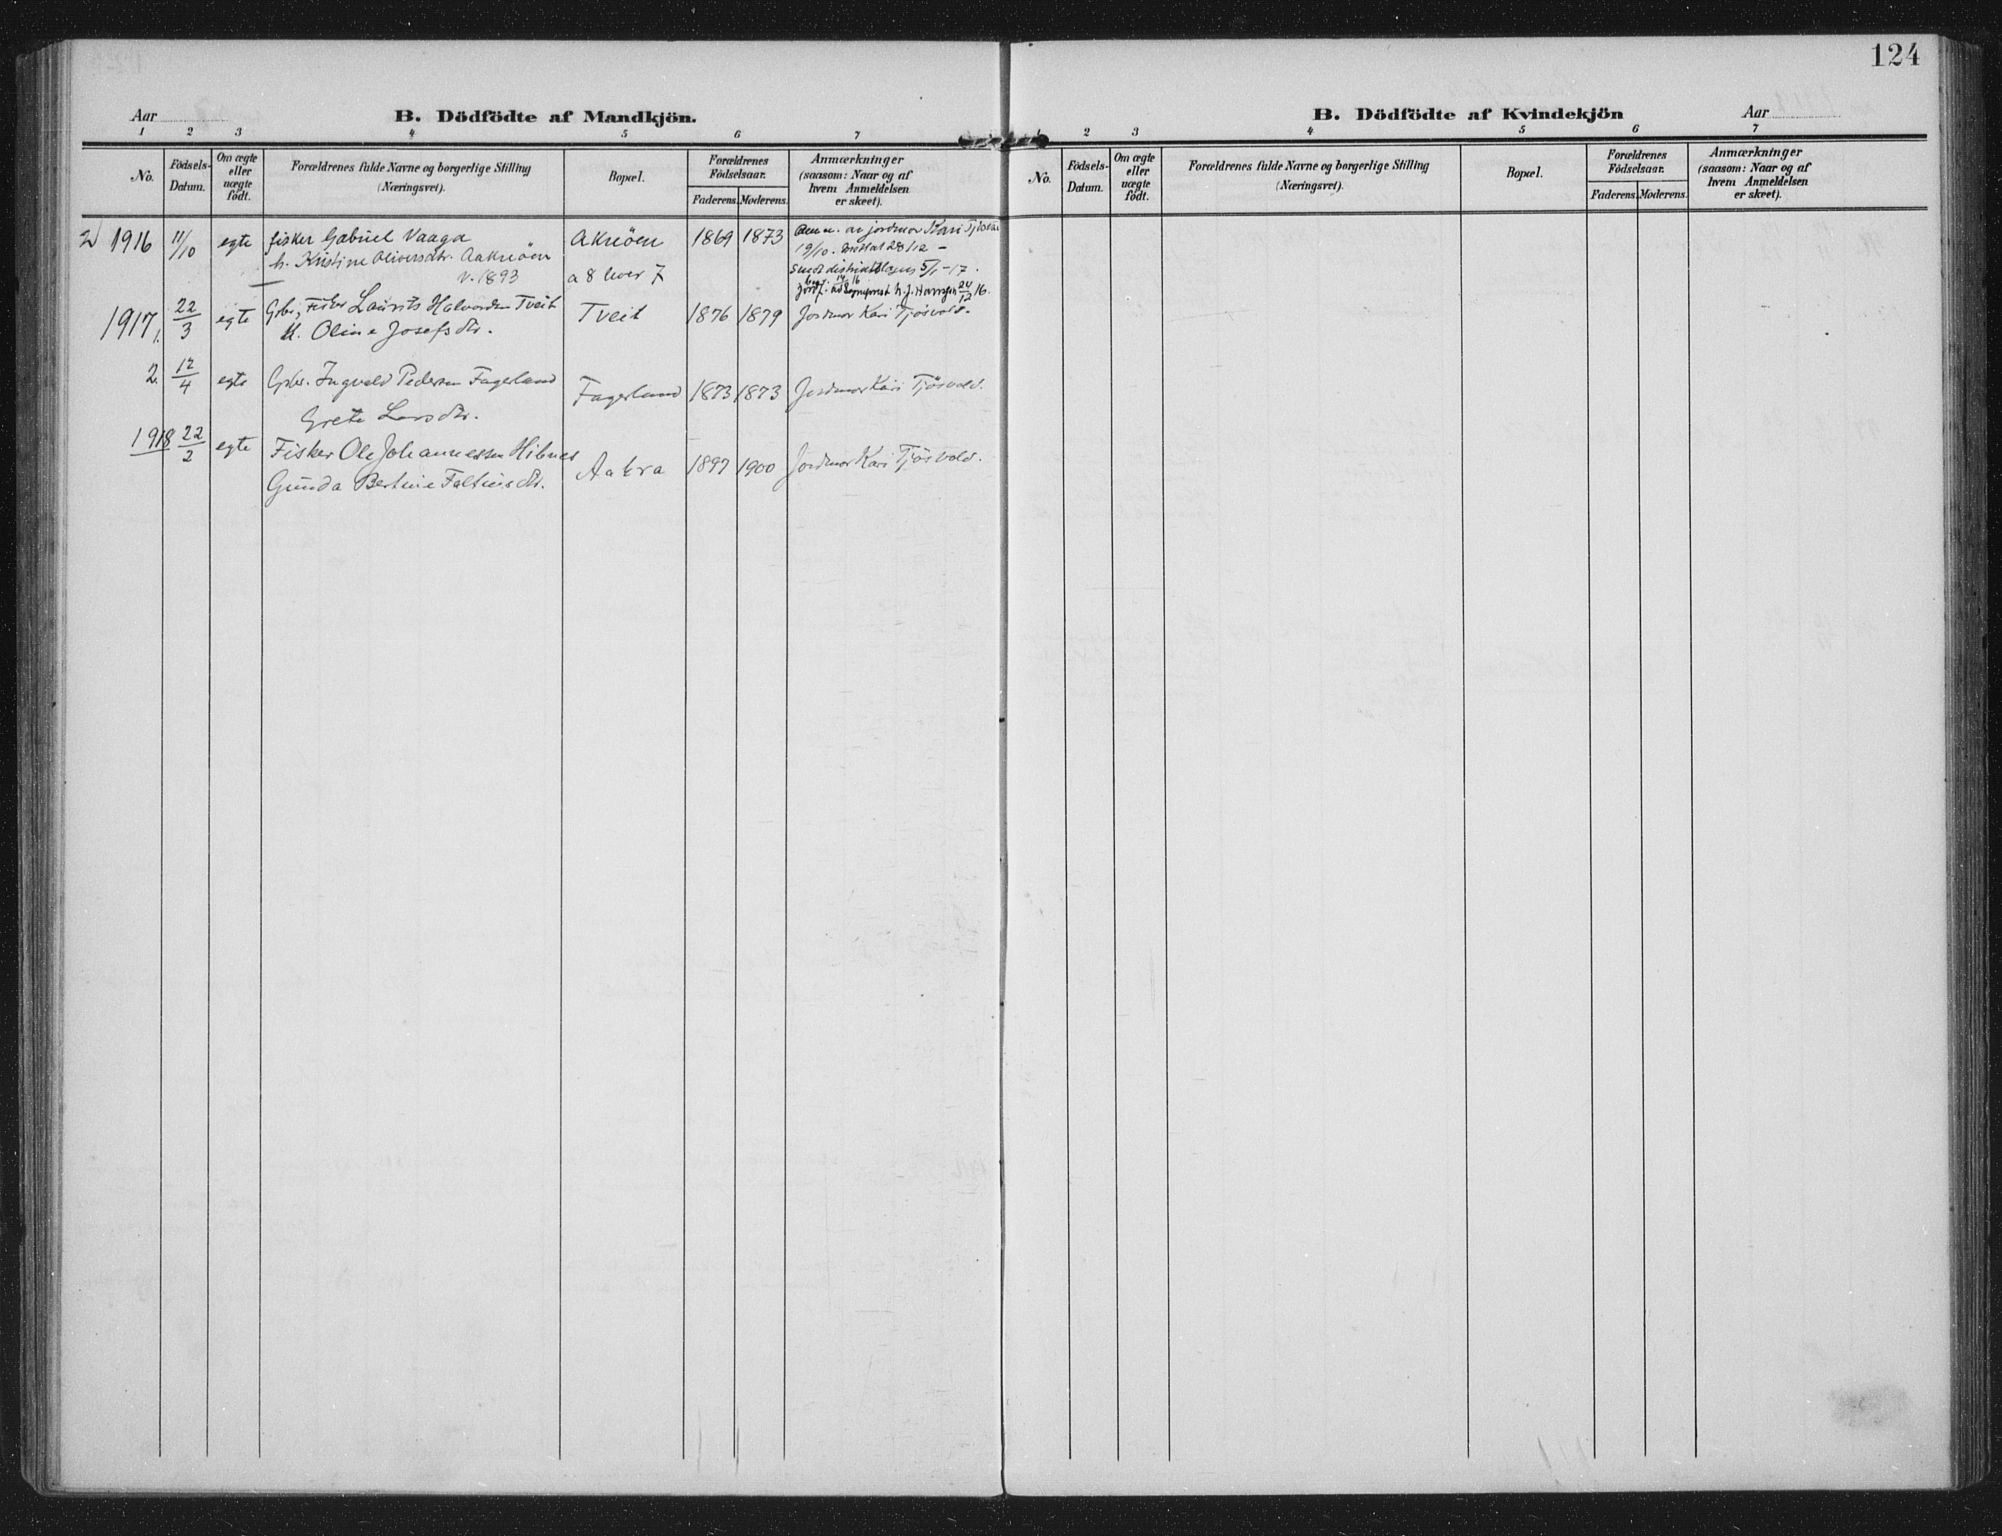 124
Aar
B. Dödfödte af Mandkjön.
1 2 3 4 5 6 7
No.
Födsels-Datum.
Om ægte eller uægte födt.
Forældrenes fulde Navne og borgerlige Stilling (Næringsvei).
Bopæl.
Forældrenes Födselsaar.
Faderens. Moderens.
Anmærkninger (saasom: Naar og af hvem Anmeldelsen er skeet).
2 1916 11/10 egte fisker Gabriel Vaaga Akrøen 1869 1873 av jordmor Kari
h. Kristine Oliversdtr. Aakrøen 19/10. 28/12 –
v. 1893 a 8 lever 7 5/1-17.
h. J. Hansen 24/12 16.
1917 1. 22/3 egte Gbr., Fisker Laurits Halvorsen Tveit Tveit 1876 1879 Jordmor Kari Tjøsvold.
H. Oline Josefsdtr.
2. 12/4 egte Gbr. Ingvald Pedersen Fagerland Fagerland 1873 1873 Jordmor Kari Tjøsvold.
Grete Larsdtr.
1918 22/2 egte Fisker Ole Johannessen Hibnes Aakra 1897 1900 Jordmor Kari Tjøsvold.
Gunda Bertine Faltinsdtr.
B. Dödfödte af Kvindekjön
Aar
1 2 3 4 5 6 7
No.
Födsels-Datum.
Om ægte eller uægte födt.
Forældrenes fulde Navne og borgerlige Stilling (Næringsvei).
Bopæl.
Forældrenes Födselsaar.
Faderens. Moderens.
Anmærkninger (saasom: Naar og af hvem Anmeldelsen er skeet).